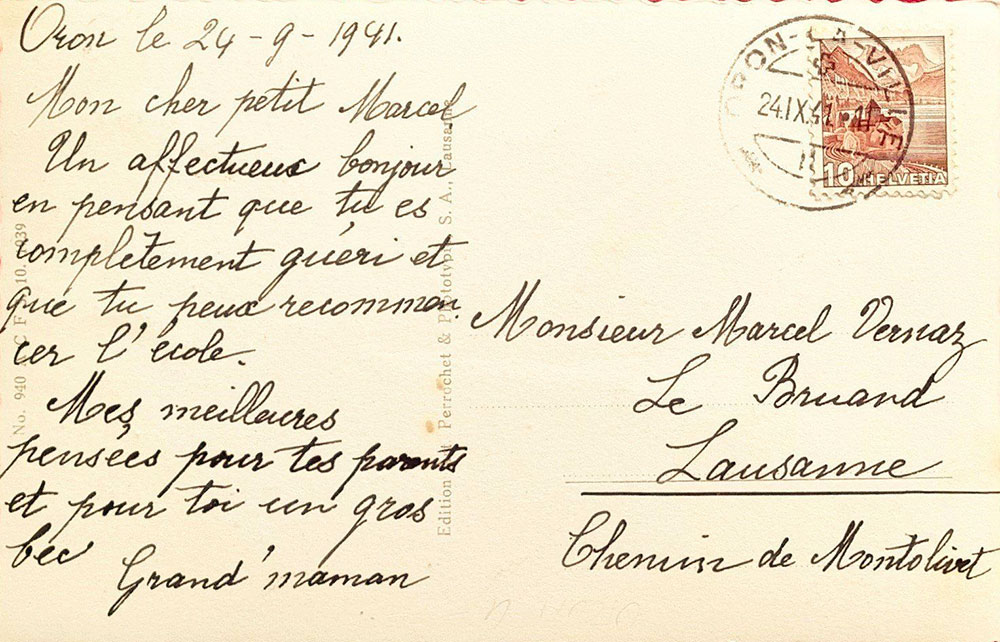 Oron le 24-9-1941.
Mon cher petit Marcel
Un affectueux bonjour
en pensant que tu es
complètement guéri et
que tu peux recommen-
cer l'école.
Mes meilleures
pensées pour tes parents
et pour toi un gros
bec
Grand'maman
No. 940 10. 1939
Edition Perrochet & Phototypie S. A., Lausanne
ORON-LA-VILLE
24.IX.41.-11
10 HELVETIA
Monsieur Marcel Vernaz
Le Bruand
Lausanne
Chemin de Montolivet